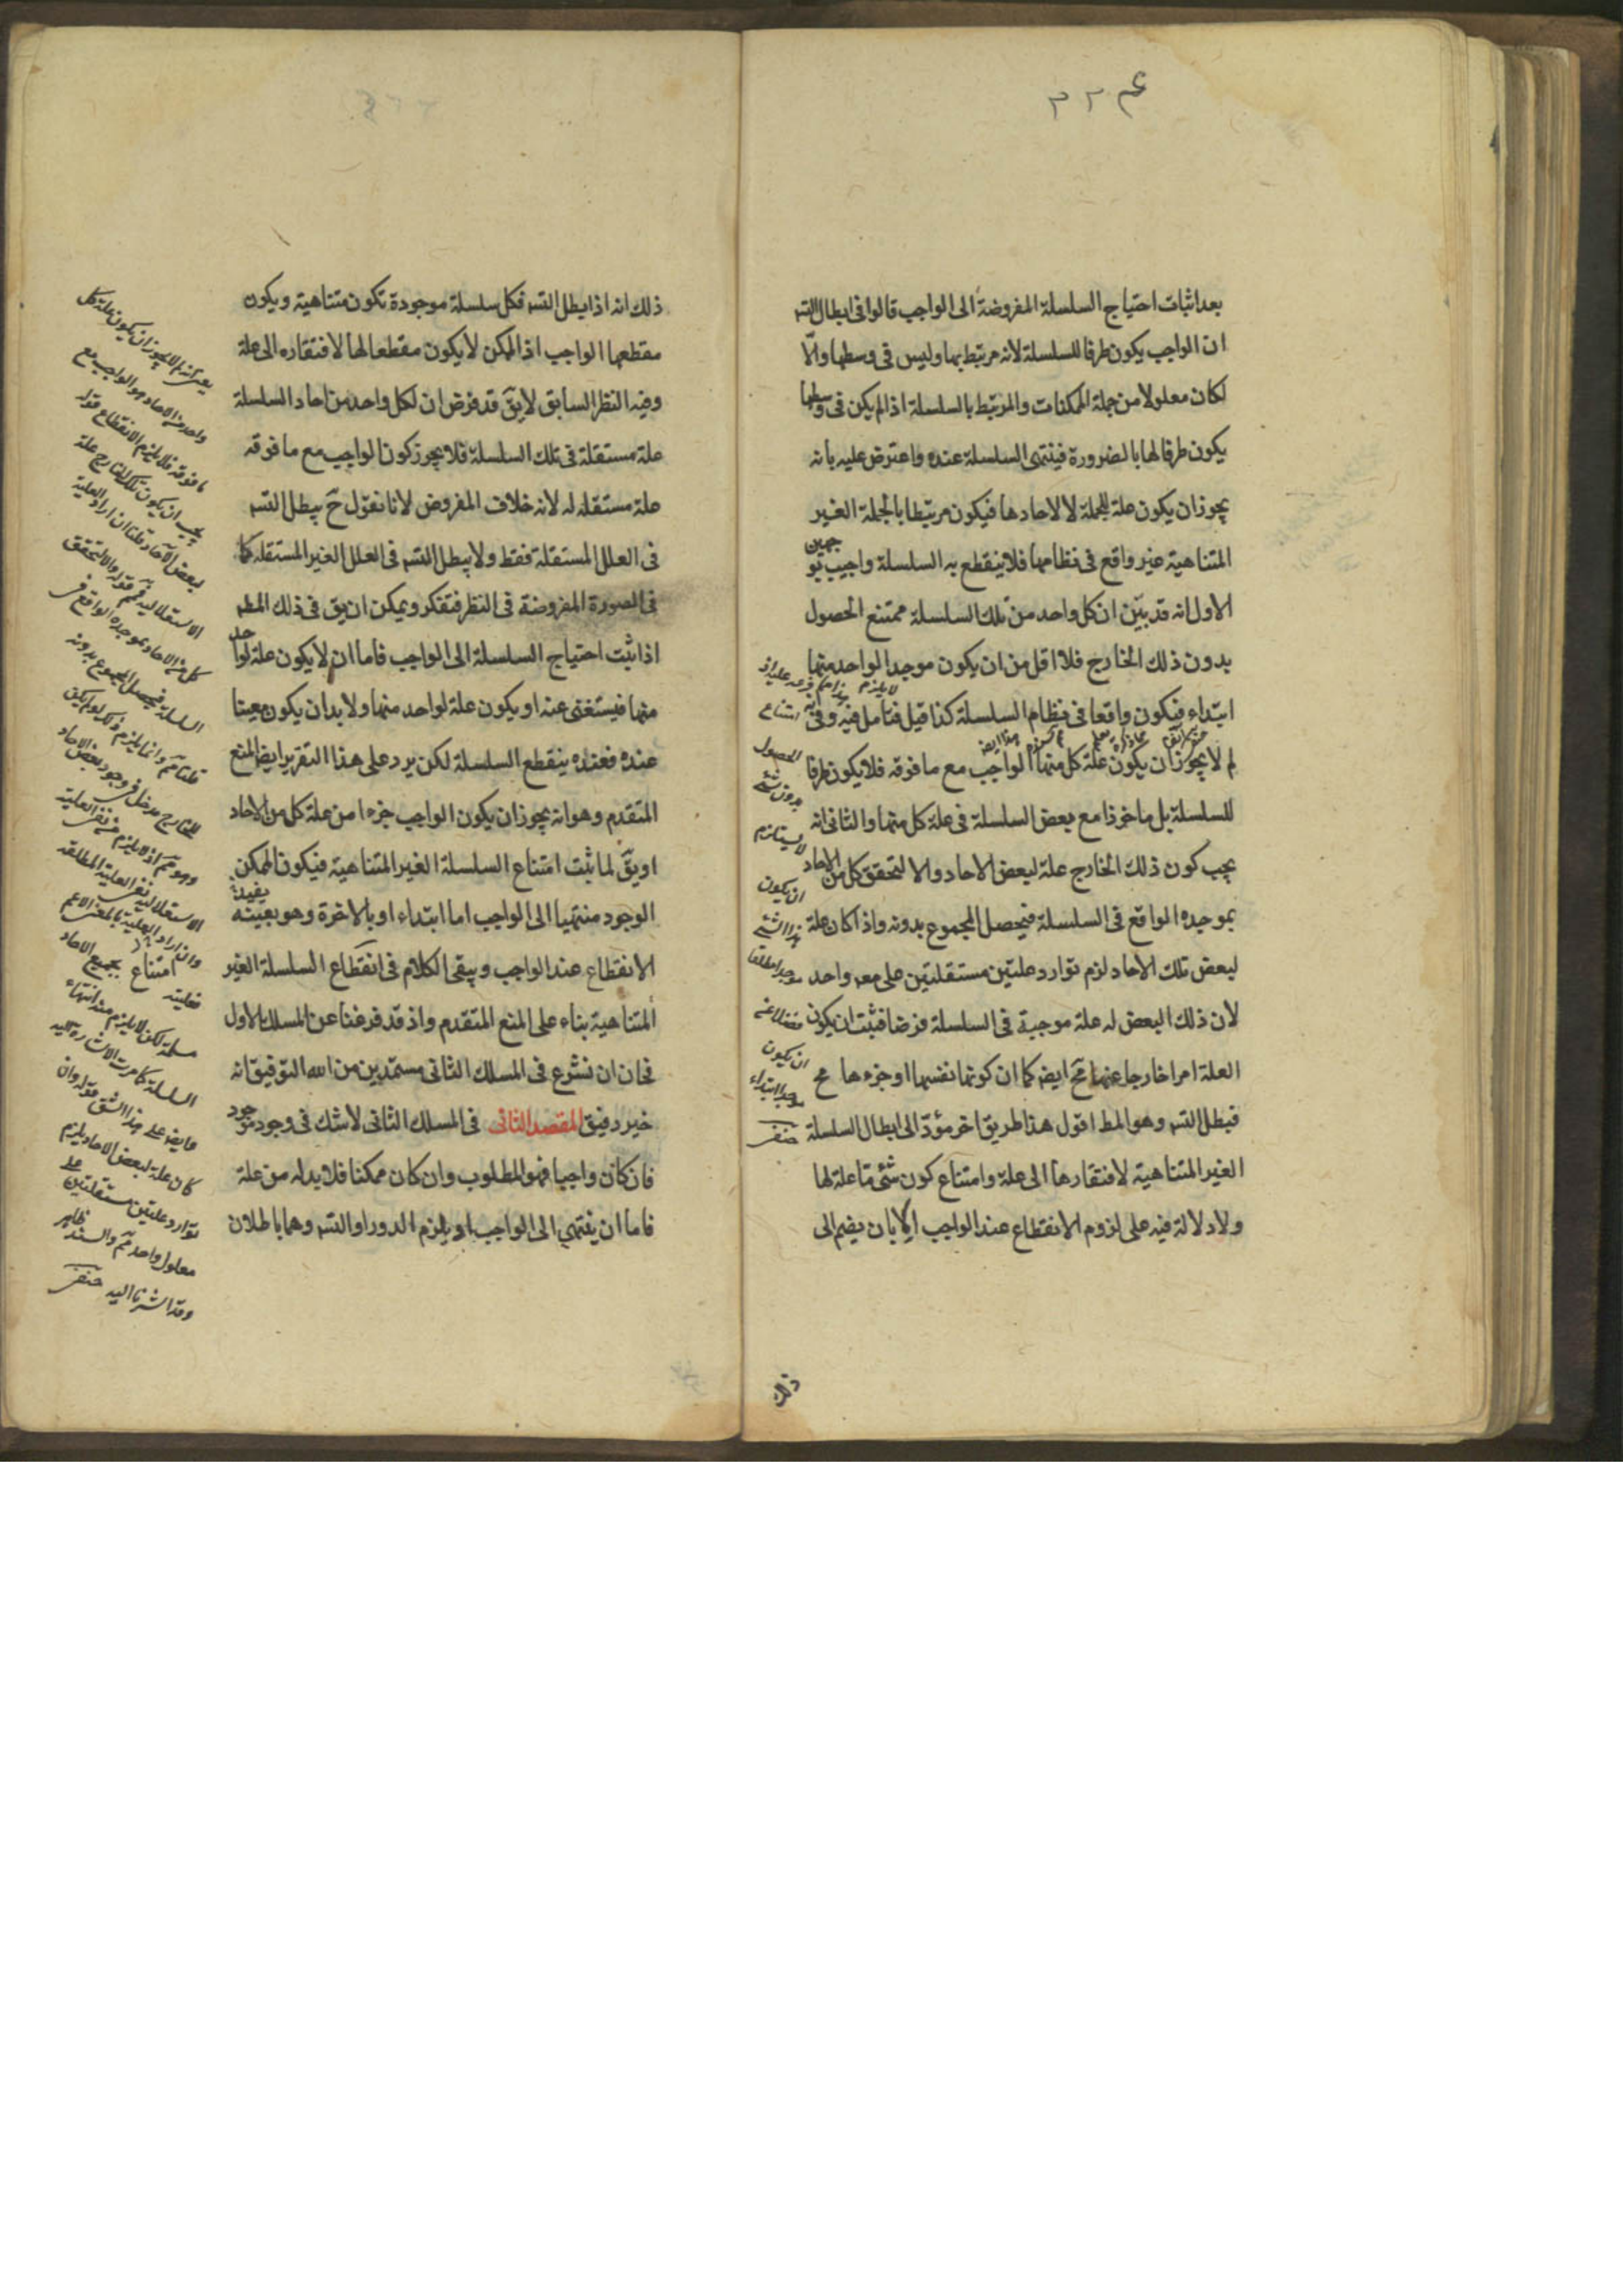 ٢٢٤
بعد اثبات احتياج السلسلة المفروضة الى الواجب قالوا فى ابطال التسـ
ان الواجب يكون طرفا للسلسلة لانه مرتبط بها وليس فى وسطها والّا
لكان معلولا من جملة الممكنات والمرتبط بالسلسلة اذا لم يكن فى وسطها
يكون طرفا لها بالضرورة فينتهى السلسلة عنده واعترض عليه بانه
يجوز ان يكون علة للجملة لا لاحادها فيكون مرتبطا بالجملة الغير
المتناهية غير واقع فى نظامها فلا ينقطع به السلسلة واجيب بو
جهين
الاول انه قد بيّن ان كل واحد من تلك السلسلة ممتنع الحصول
بدون ذلك الخارج فلا اقل من ان يكون موجدا لواحد منها
ابتداء فيكون واقعا فى نظام السلسلة كذا قيل فتأمل فيه وفى
لم لا يجوز ان يكون علة كل منها الواجب مع ما فوقه فلا يكون طرفا
للسلسلة بل ماخوذا مع بعض السلسلة فى علة كل منها والثانى انه
يجب كون ذلك الخارج علة لبعض الاحاد والا لتحقق كل من الاحاد
بموجده الواقع فى السلسلة فيحصل المجموع بدونه واذا كان علة
لبعض تلك الاحاد لزم توارد علتين مستقلتين على معـ واحد
لان ذلك البعض له علة موجبة فى السلسلة فرضا فثبت ان يكون
العلة امرا خارجا عنها مح ايضـ كما ان كونها نفسها او جزءها مح
فبطل التسـ وهو المط اقول هذا طريق اخر مؤدّ الى ابطال السلسلة
الغير المتناهية لافتقارها الى علة وامتناع كون شئ ما علة لها
ولا دلالة فيه على لزوم الانقطاع عند الواجب الا بان يضم الى
امتناع
الحصول
بدون شئ
لا يستلزم
ان يكون
هذا الشئ
موجدا مطلقا
فضلا عن
ان يكون
موجدا ابتداء
ذلك
ذلك انه اذا بطل التسـ فكل سلسلة موجودة تكون متناهية ويكون
مقطعها الواجب اذ الممكن لا يكون مقطعا لها لافتقاره الى علة
وفيه النظر السابق لا يقّ قد فرض ان لكل واحد من احاد السلسلة
علة مستقلة فى تلك السلسلة فلا يجوز كون الواجب مع ما فوقه
علة مستقله له لانه خلاف المفروض لانا نقول حّ يبطل التسـ
فى العلل المستقلة فقط ولا يبطل التسـ فى العلل الغير المستقله كما
فى الصورة المفروضة فى النظر فتفكر ويمكن ان يق فى ذلك المطـ
اذا ثبت احتياج السلسلة الى الواجب فاما ان لا يكون علة لوا
حد
منها فيستغنى عنه او يكون علة لواحد منها ولا بد ان يكون معينا
عنده فعنده ينقطع السلسلة لكن يرد على هذا التقرير ايضا المنع
المتقدم وهو انه يجوز ان يكون الواجب جزءا من علة كل من الاحاد
او يقّ لما ثبت امتناع السلسلة الغير المتناهية فيكون الممكن
الوجود منتهيا الى الواجب اما ابتداء او بالاخرة وهو بعينه
الانقطاع عند الواجب ويبقى الكلام فى انقطاع السلسلة الغير
المتناهية بناء على المنع المتقدم واذ قد فرغنا عن المسلك الاول
فحان ان نشرع فى المسلك الثانى مستمدين من الله التوفيق انه
خير رفيق المقصد الثانى فى المسلك الثانى لا شك فى وجود موجود
فان كان واجبا فهو المطلوب وان كان ممكنا فلا بد له من علة
فاما ان ينتهى الى الواجب او يلزم الدور او التسـ وهما باطلان
واحد من الاحاد هو الواجب مع
ما فوقه فلا يلزم الانقطاع قوله
يجب ان يكون ذلك الخارج علة
لبعض الآحاد قلنا ان اراد العلية
كل من الاحاد بموجده الواقع فى
السلسلة فيحصل المجموع بدونه
للخارج مدخل فى وجود بعض الاحاد
الاستقلالية نفى العلية المطلقة
وان اراد العلية بالمعنى الاعم
السلسلة كما مرت الاشارة اليه
كان علة لبعض الاحاد يلزم
توارد علتين مستقلتين على
معلول واحد مم والسند ظاهر
وقد اشرنا اليه